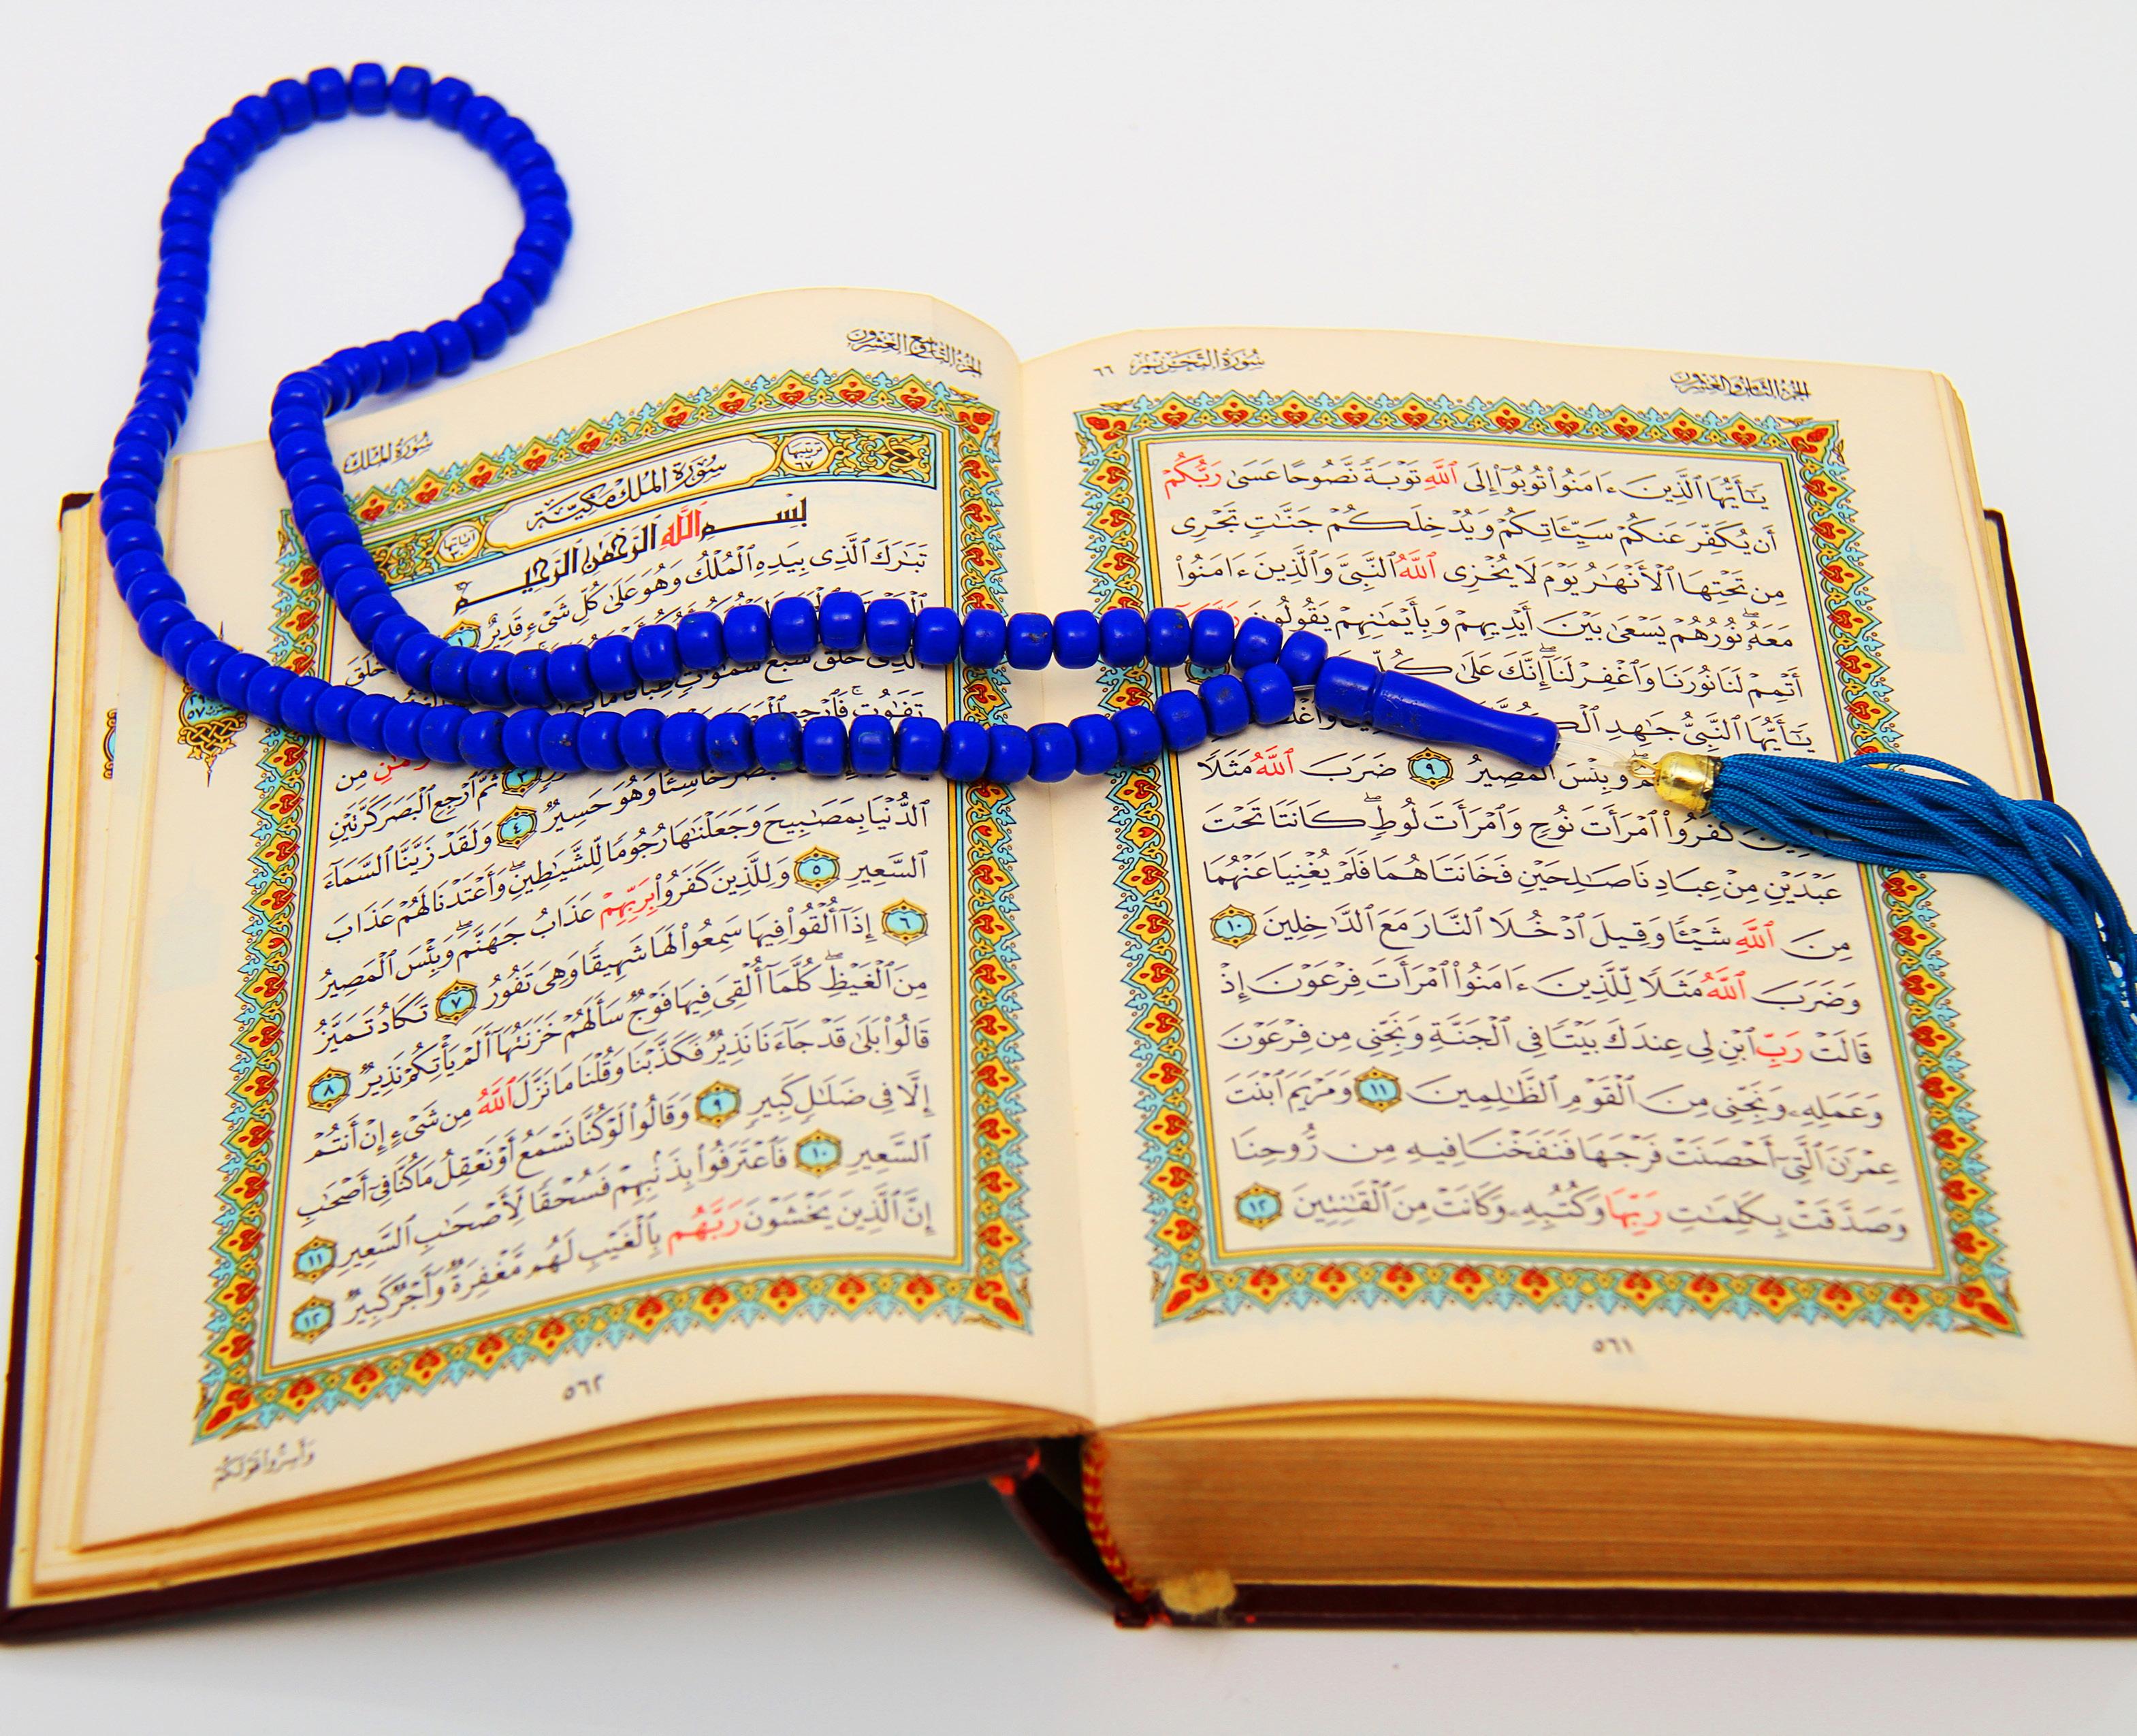 الجزء الثامن والعشرون
سُورَةُ التَّحْرِيمِ ٦٦
يَٰٓأَيُّهَا ٱلَّذِينَ ءَامَنُوا۟ تُوبُوٓا۟ إِلَى ٱللَّهِ تَوْبَةً نَّصُوحًا عَسَىٰ رَبُّكُمْ
أَن يُكَفِّرَ عَنكُمْ سَيِّـَٔاتِكُمْ وَيُدْخِلَكُمْ جَنَّٰتٍ تَجْرِى
مِن تَحْتِهَا ٱلْأَنْهَٰرُ يَوْمَ لَا يُخْزِى ٱللَّهُ ٱلنَّبِىَّ وَٱلَّذِينَ ءَامَنُوا۟
مَعَهُۥ ۖ نُورُهُمْ يَسْعَىٰ بَيْنَ أَيْدِيهِمْ وَبِأَيْمَٰنِهِمْ يَقُولُونَ
أَتْمِمْ لَنَا نُورَنَا وَٱغْفِرْ لَنَآ ۖ إِنَّكَ عَلَىٰ كُلِّ
يَٰٓأَيُّهَا ٱلنَّبِىُّ جَٰهِدِ
وَبِئْسَ ٱلْمَصِيرُ ٩ ضَرَبَ ٱللَّهُ مَثَلًا
كَفَرُوا۟ ٱمْرَأَتَ نُوحٍ وَٱمْرَأَتَ لُوطٍ ۖ كَانَتَا تَحْتَ
عَبْدَيْنِ مِنْ عِبَادِنَا صَٰلِحَيْنِ فَخَانَتَاهُمَا فَلَمْ يُغْنِيَا عَنْهُمَا
مِنَ ٱللَّهِ شَيْـًٔا وَقِيلَ ٱدْخُلَا ٱلنَّارَ مَعَ ٱلدَّٰخِلِينَ ١٠
وَضَرَبَ ٱللَّهُ مَثَلًا لِّلَّذِينَ ءَامَنُوا۟ ٱمْرَأَتَ فِرْعَوْنَ إِذْ
قَالَتْ رَبِّ ٱبْنِ لِى عِندَكَ بَيْتًا فِى ٱلْجَنَّةِ وَنَجِّنِى مِن فِرْعَوْنَ
وَعَمَلِهِۦ وَنَجِّنِى مِنَ ٱلْقَوْمِ ٱلظَّٰلِمِينَ ١١ وَمَرْيَمَ ٱبْنَتَ
عِمْرَٰنَ ٱلَّتِىٓ أَحْصَنَتْ فَرْجَهَا فَنَفَخْنَا فِيهِ مِن رُّوحِنَا
وَصَدَّقَتْ بِكَلِمَٰتِ رَبِّهَا وَكُتُبِهِۦ وَكَانَتْ مِنَ ٱلْقَٰنِتِينَ ١٢
٥٦١
الجزء التاسع والعشرون
سُورَةُ المُلْكِ
ترتيبها ٦٧
سُورَةُ المُلْكِ مَكِّيَّة
آياتها ٣٠
بِسْمِ ٱللَّهِ ٱلرَّحْمَٰنِ ٱلرَّحِيمِ
تَبَٰرَكَ ٱلَّذِى بِيَدِهِ ٱلْمُلْكُ وَهُوَ عَلَىٰ كُلِّ شَىْءٍ قَدِيرٌ ١
ٱلَّذِى خَلَقَ سَبْعَ سَمَٰوَٰتٍ طِبَاقًا خَلَقَ
تَفَٰوُتٍ ۖ فَٱرْجِعِ
مِن
ثُمَّ ٱرْجِعِ ٱلْبَصَرَ كَرَّتَيْنِ
خَاسِئًا وَهُوَ حَسِيرٌ ٤ وَلَقَدْ زَيَّنَّا ٱلسَّمَآءَ
ٱلدُّنْيَا بِمَصَٰبِيحَ وَجَعَلْنَٰهَا رُجُومًا لِّلشَّيَٰطِينِ ۖ وَأَعْتَدْنَا لَهُمْ عَذَابَ
ٱلسَّعِيرِ ٥ وَلِلَّذِينَ كَفَرُوا۟ بِرَبِّهِمْ عَذَابُ جَهَنَّمَ ۖ وَبِئْسَ ٱلْمَصِيرُ
٦ إِذَآ أُلْقُوا۟ فِيهَا سَمِعُوا۟ لَهَا شَهِيقًا وَهِىَ تَفُورُ ٧ تَكَادُ تَمَيَّزُ
مِنَ ٱلْغَيْظِ ۖ كُلَّمَآ أُلْقِىَ فِيهَا فَوْجٌ سَأَلَهُمْ خَزَنَتُهَآ أَلَمْ يَأْتِكُمْ نَذِيرٌ ٨
قَالُوا۟ بَلَىٰ قَدْ جَآءَنَا نَذِيرٌ فَكَذَّبْنَا وَقُلْنَا مَا نَزَّلَ ٱللَّهُ مِن شَىْءٍ إِنْ أَنتُمْ
إِلَّا فِى ضَلَٰلٍ كَبِيرٍ ٩ وَقَالُوا۟ لَوْ كُنَّا نَسْمَعُ أَوْ نَعْقِلُ مَا كُنَّا فِىٓ أَصْحَٰبِ
ٱلسَّعِيرِ ١٠ فَٱعْتَرَفُوا۟ بِذَنۢبِهِمْ فَسُحْقًا لِّأَصْحَٰبِ ٱلسَّعِيرِ ١١
إِنَّ ٱلَّذِينَ يَخْشَوْنَ رَبَّهُم بِٱلْغَيْبِ لَهُم مَّغْفِرَةٌ وَأَجْرٌ كَبِيرٌ ١٢
٥٦٢
وَأَسِرُّوا۟ قَوْلَكُمْ